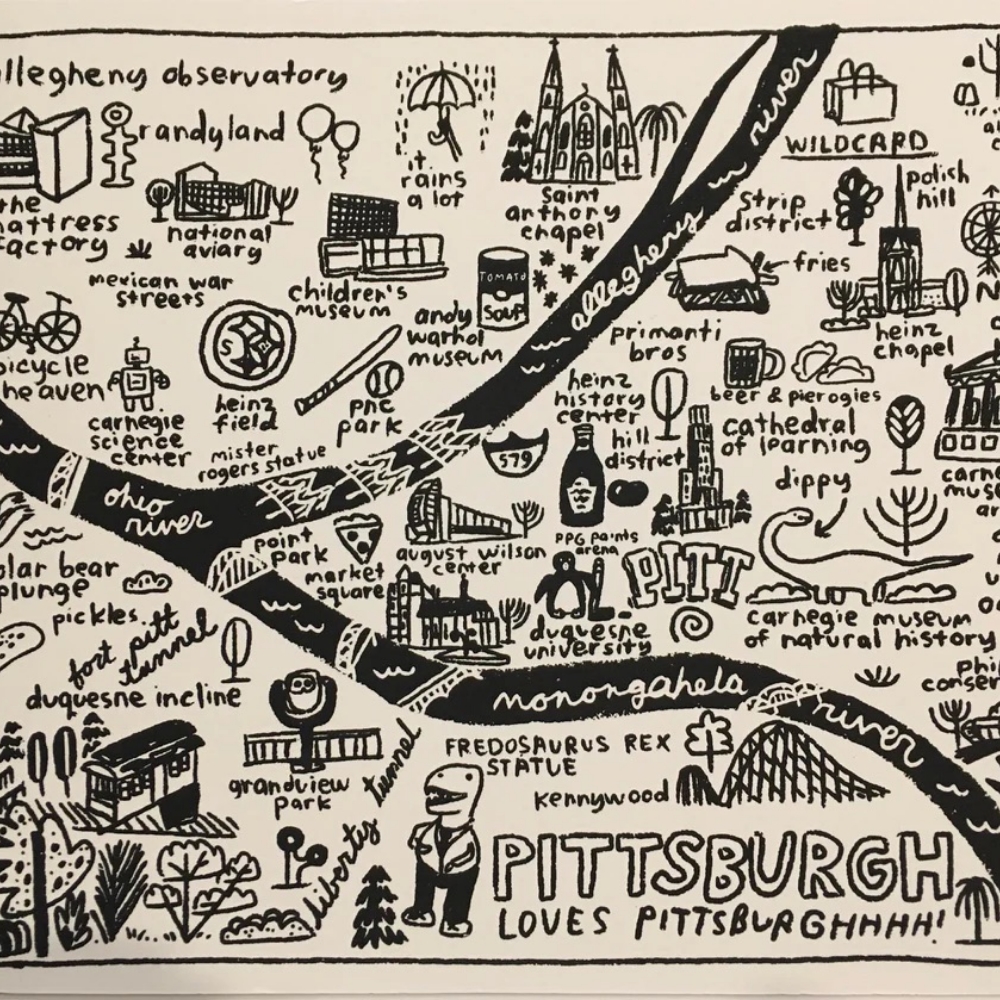 allegheny observatory
randyland
the
mattress
factory
national
aviary
it
rains
a lot
saint
anthony
chapel
river
allegheny
WILDCARD
strip
district
polish
hill
fries
mexican war
streets
children's
museum
TOMATO
SOUP
andy
warhol
museum
primanti
bros
heinz
chapel
bicycle
heaven
carnegie
science
center
S
heinz
field
pnc
park
mister
rogers statue
579
heinz
history
center
hill
district
beer & pierogies
cathedral
of learning
dippy
ohio
river
point
park
market
square
august wilson
center
PPG paints
arena
PITT
duquesne
university
carnegie museum
of natural history
polar bear
plunge
pickles
fort pitt
tunnel
duquesne incline
grandview
park
liberty tunnel
monongahela
river
FREDOSAURUS REX
STATUE
kennywood
PITTSBURGH
LOVES PITTSBURGHHHH!